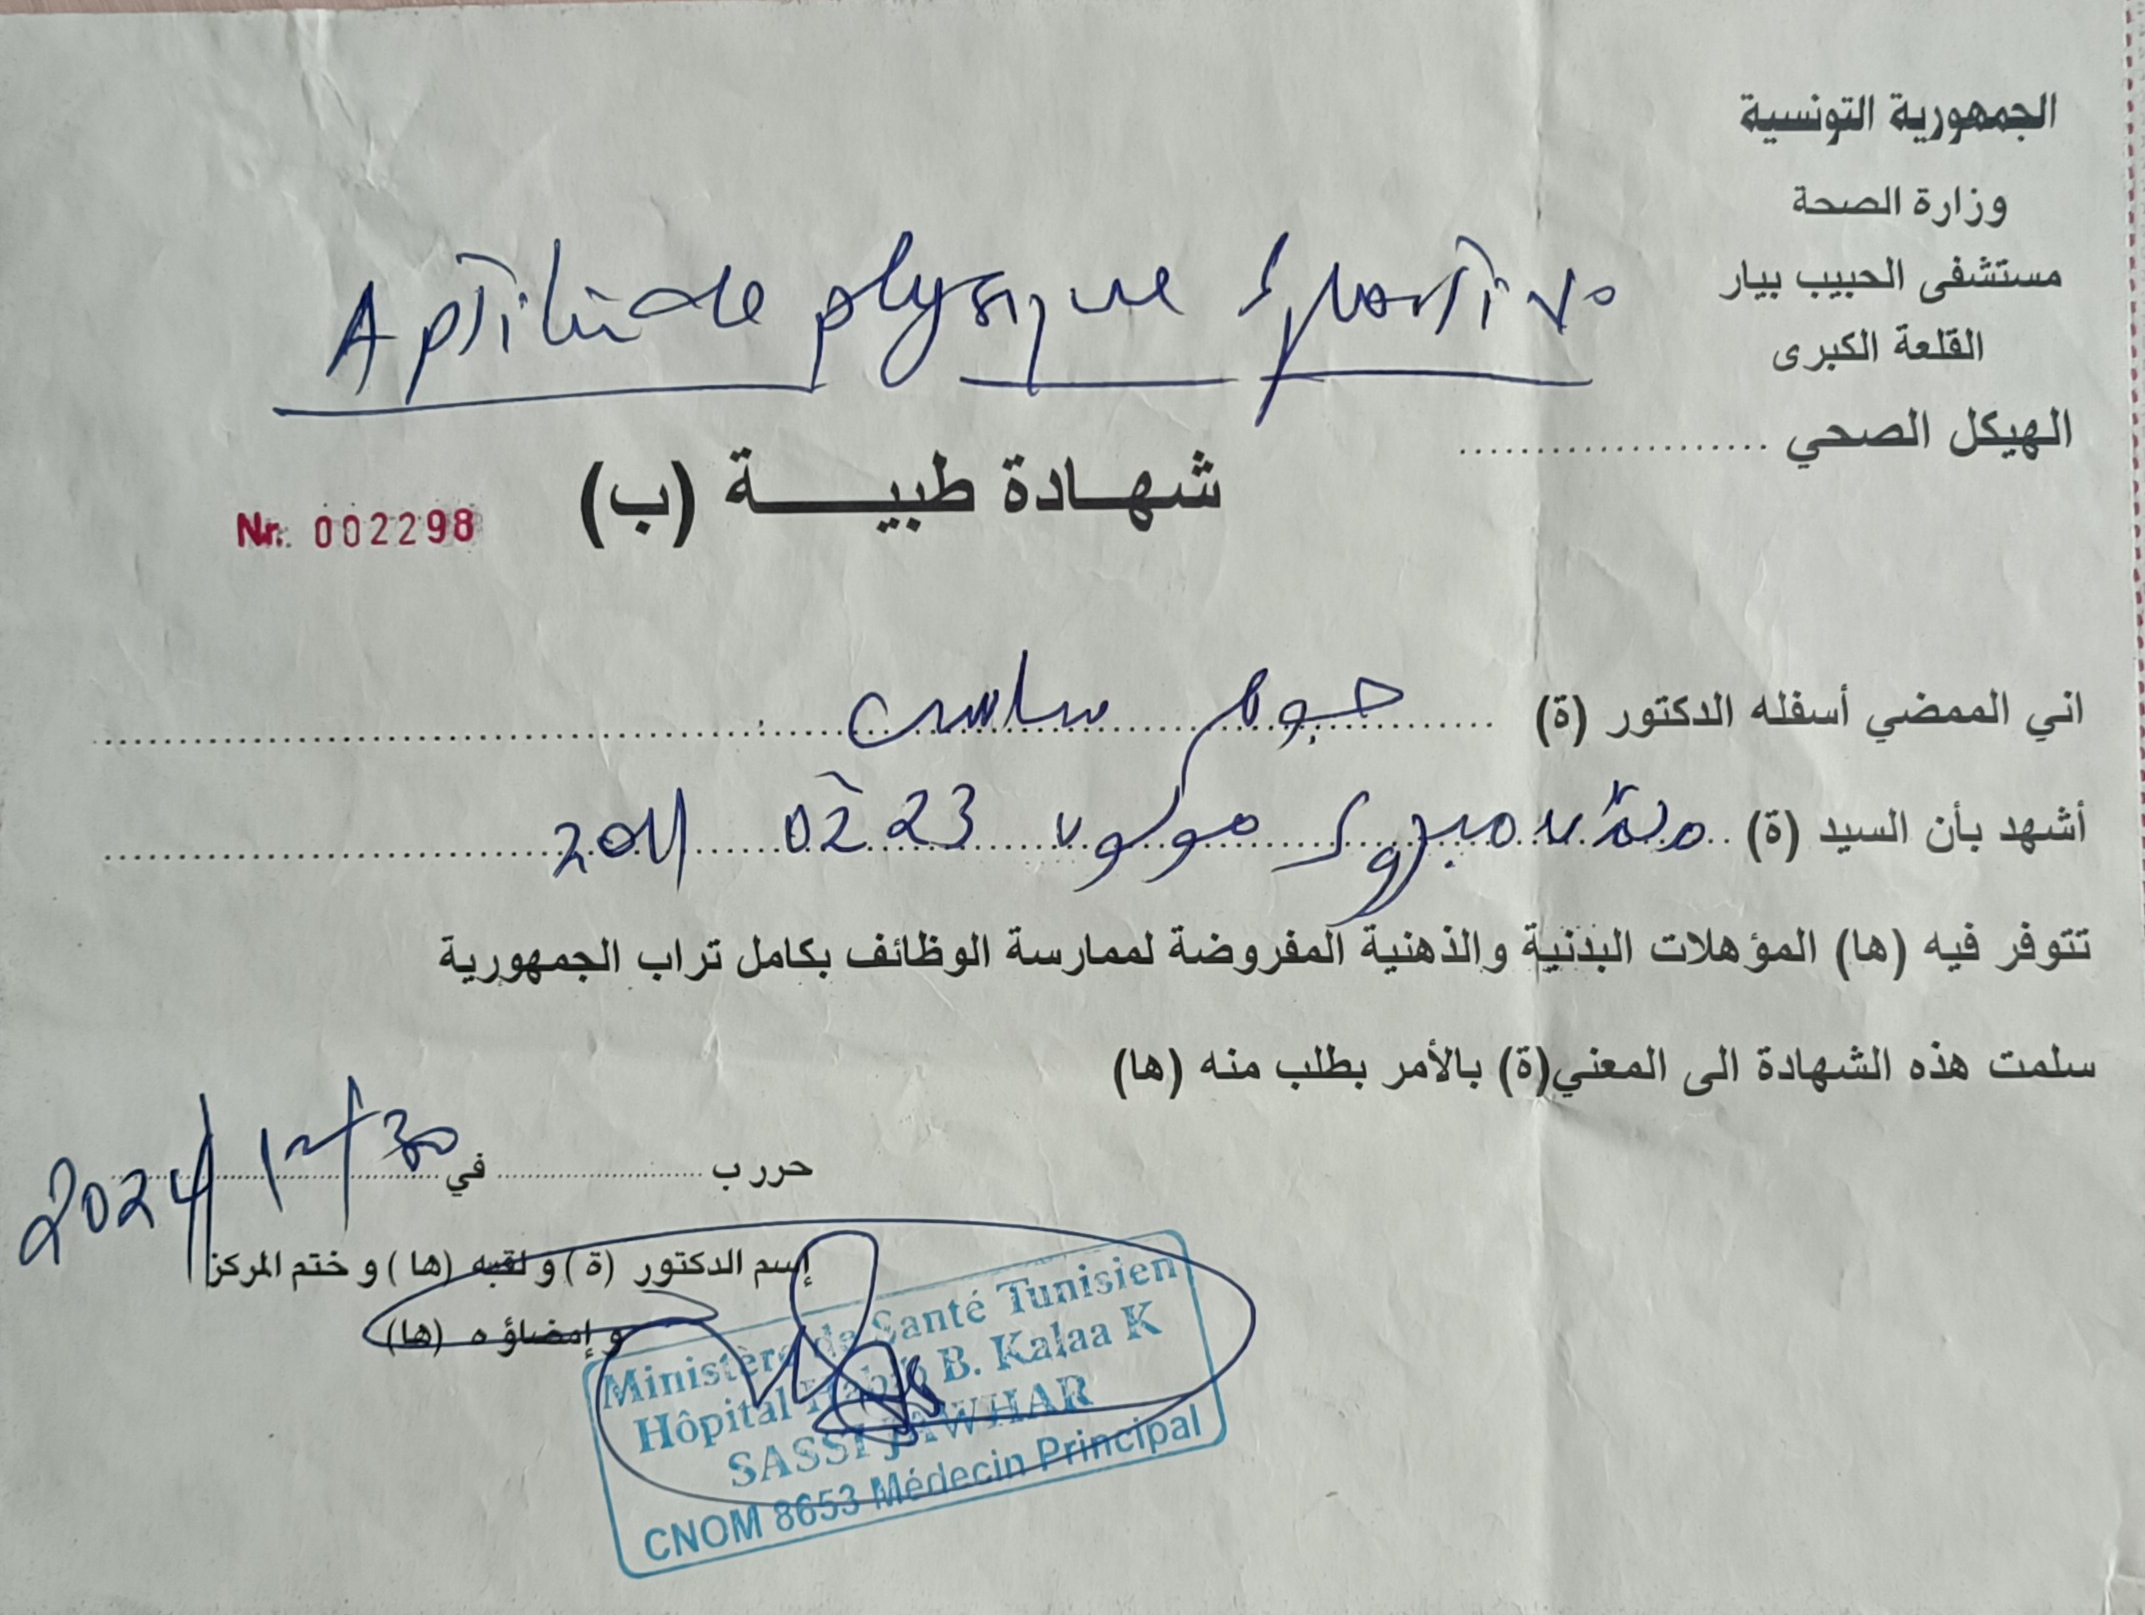 الجمهورية التونسية
وزارة الصحة
مستشفى الحبيب بيار
القلعة الكبرى
الهيكل الصحي ....................
Aptitude physique sportive
شهادة طبية (ب)
Nr. 002298
اني الممضي أسفله الدكتور (ة) جوهر ساسي
أشهد بأن السيد (ة) مبروك مولود 23 02 2011
تتوفر فيه (ها) المؤهلات البدنية والذهنية المفروضة لممارسة الوظائف بكامل تراب الجمهورية
سلمت هذه الشهادة الى المعني(ة) بالأمر بطلب منه (ها)
حرر ب .................... في 30/12/2024
إسم الدكتور (ة) و لقبه (ها) و ختم المركز
و إمضاؤه (ها)
Ministère de Santé Tunisien
Hôpital Habib B. Kalaa K
SASSI JAWHAR
CNOM 8653 Médecin Principal